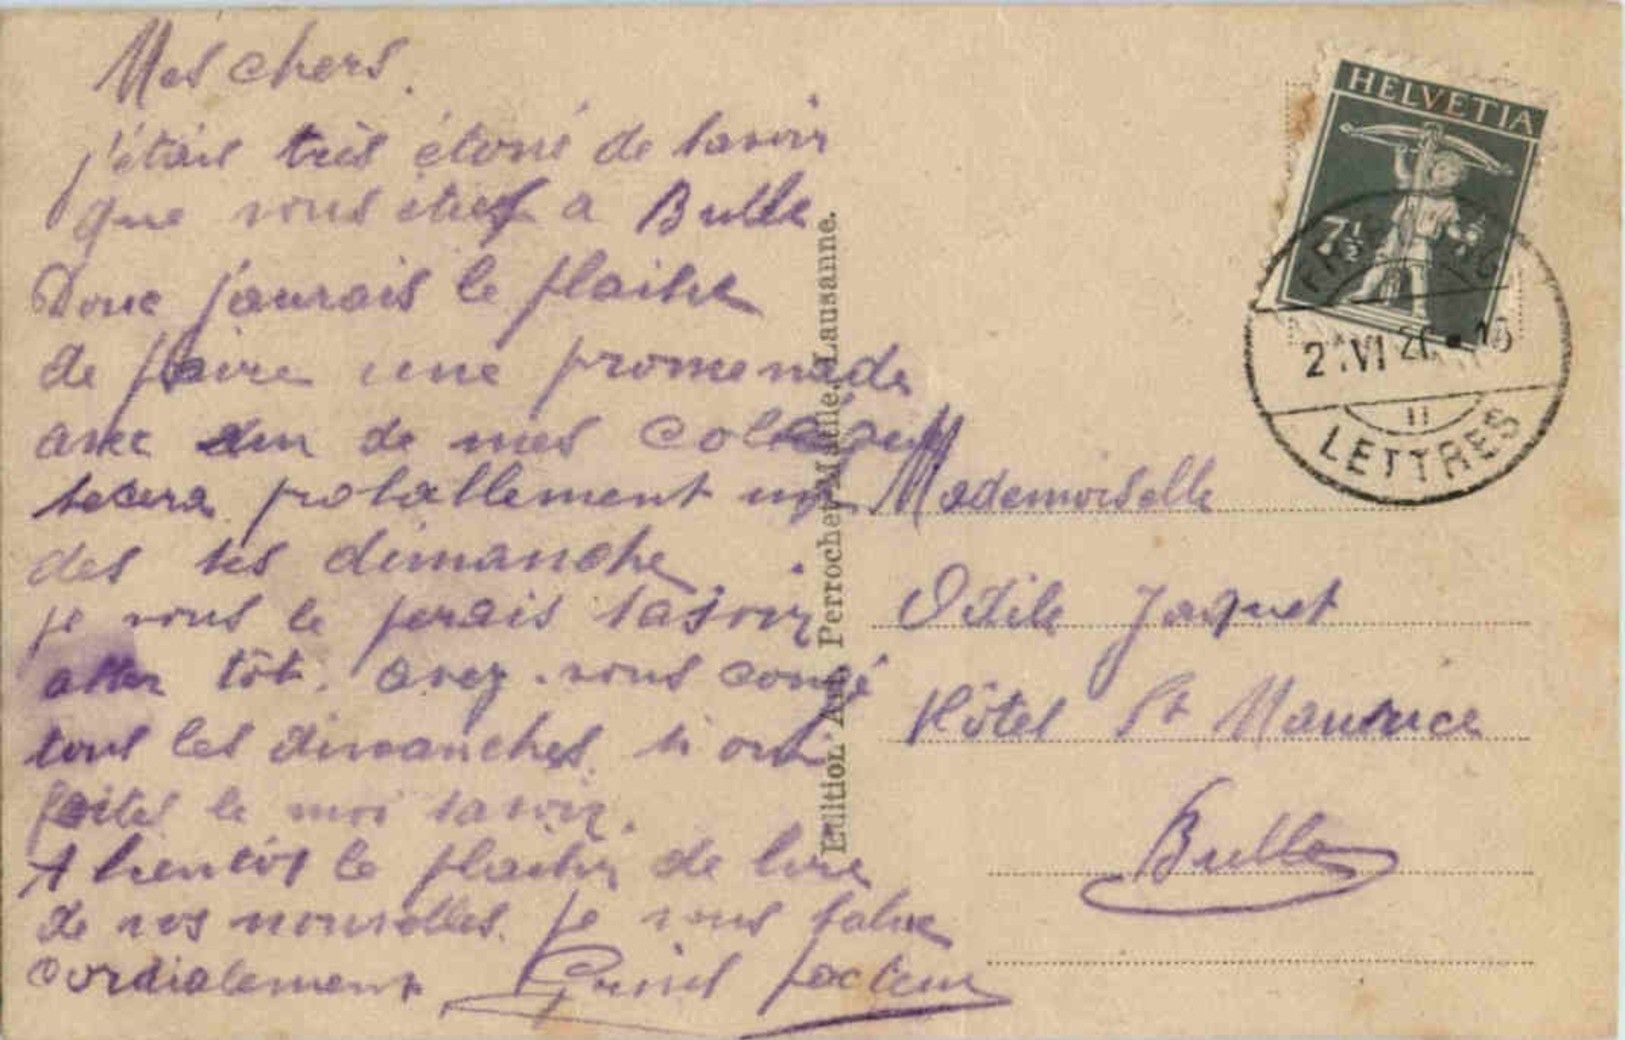 Mes chers.
j'étais très étoné de savoir
que vous étiez a Bulle
Donc j'aurais le plaisire
de faire une promenade
avec un de mes collègue
probablement un
des ses dimanche
je vous le ferais savoir
asser tôt. avez-vous congé
tous les dimanches. si oui
faites le moi savoir.
A bientôt le plaisir de lire
de vos nouvelles. Je vous salue
Cordialement facteur
Edition Art. Perrochet-Matile, Lausanne.
HELVETIA
7½
2.VI
LETTRES
Mademoiselle
Odile Jaquet
Hôtel St Maurice
Bulle